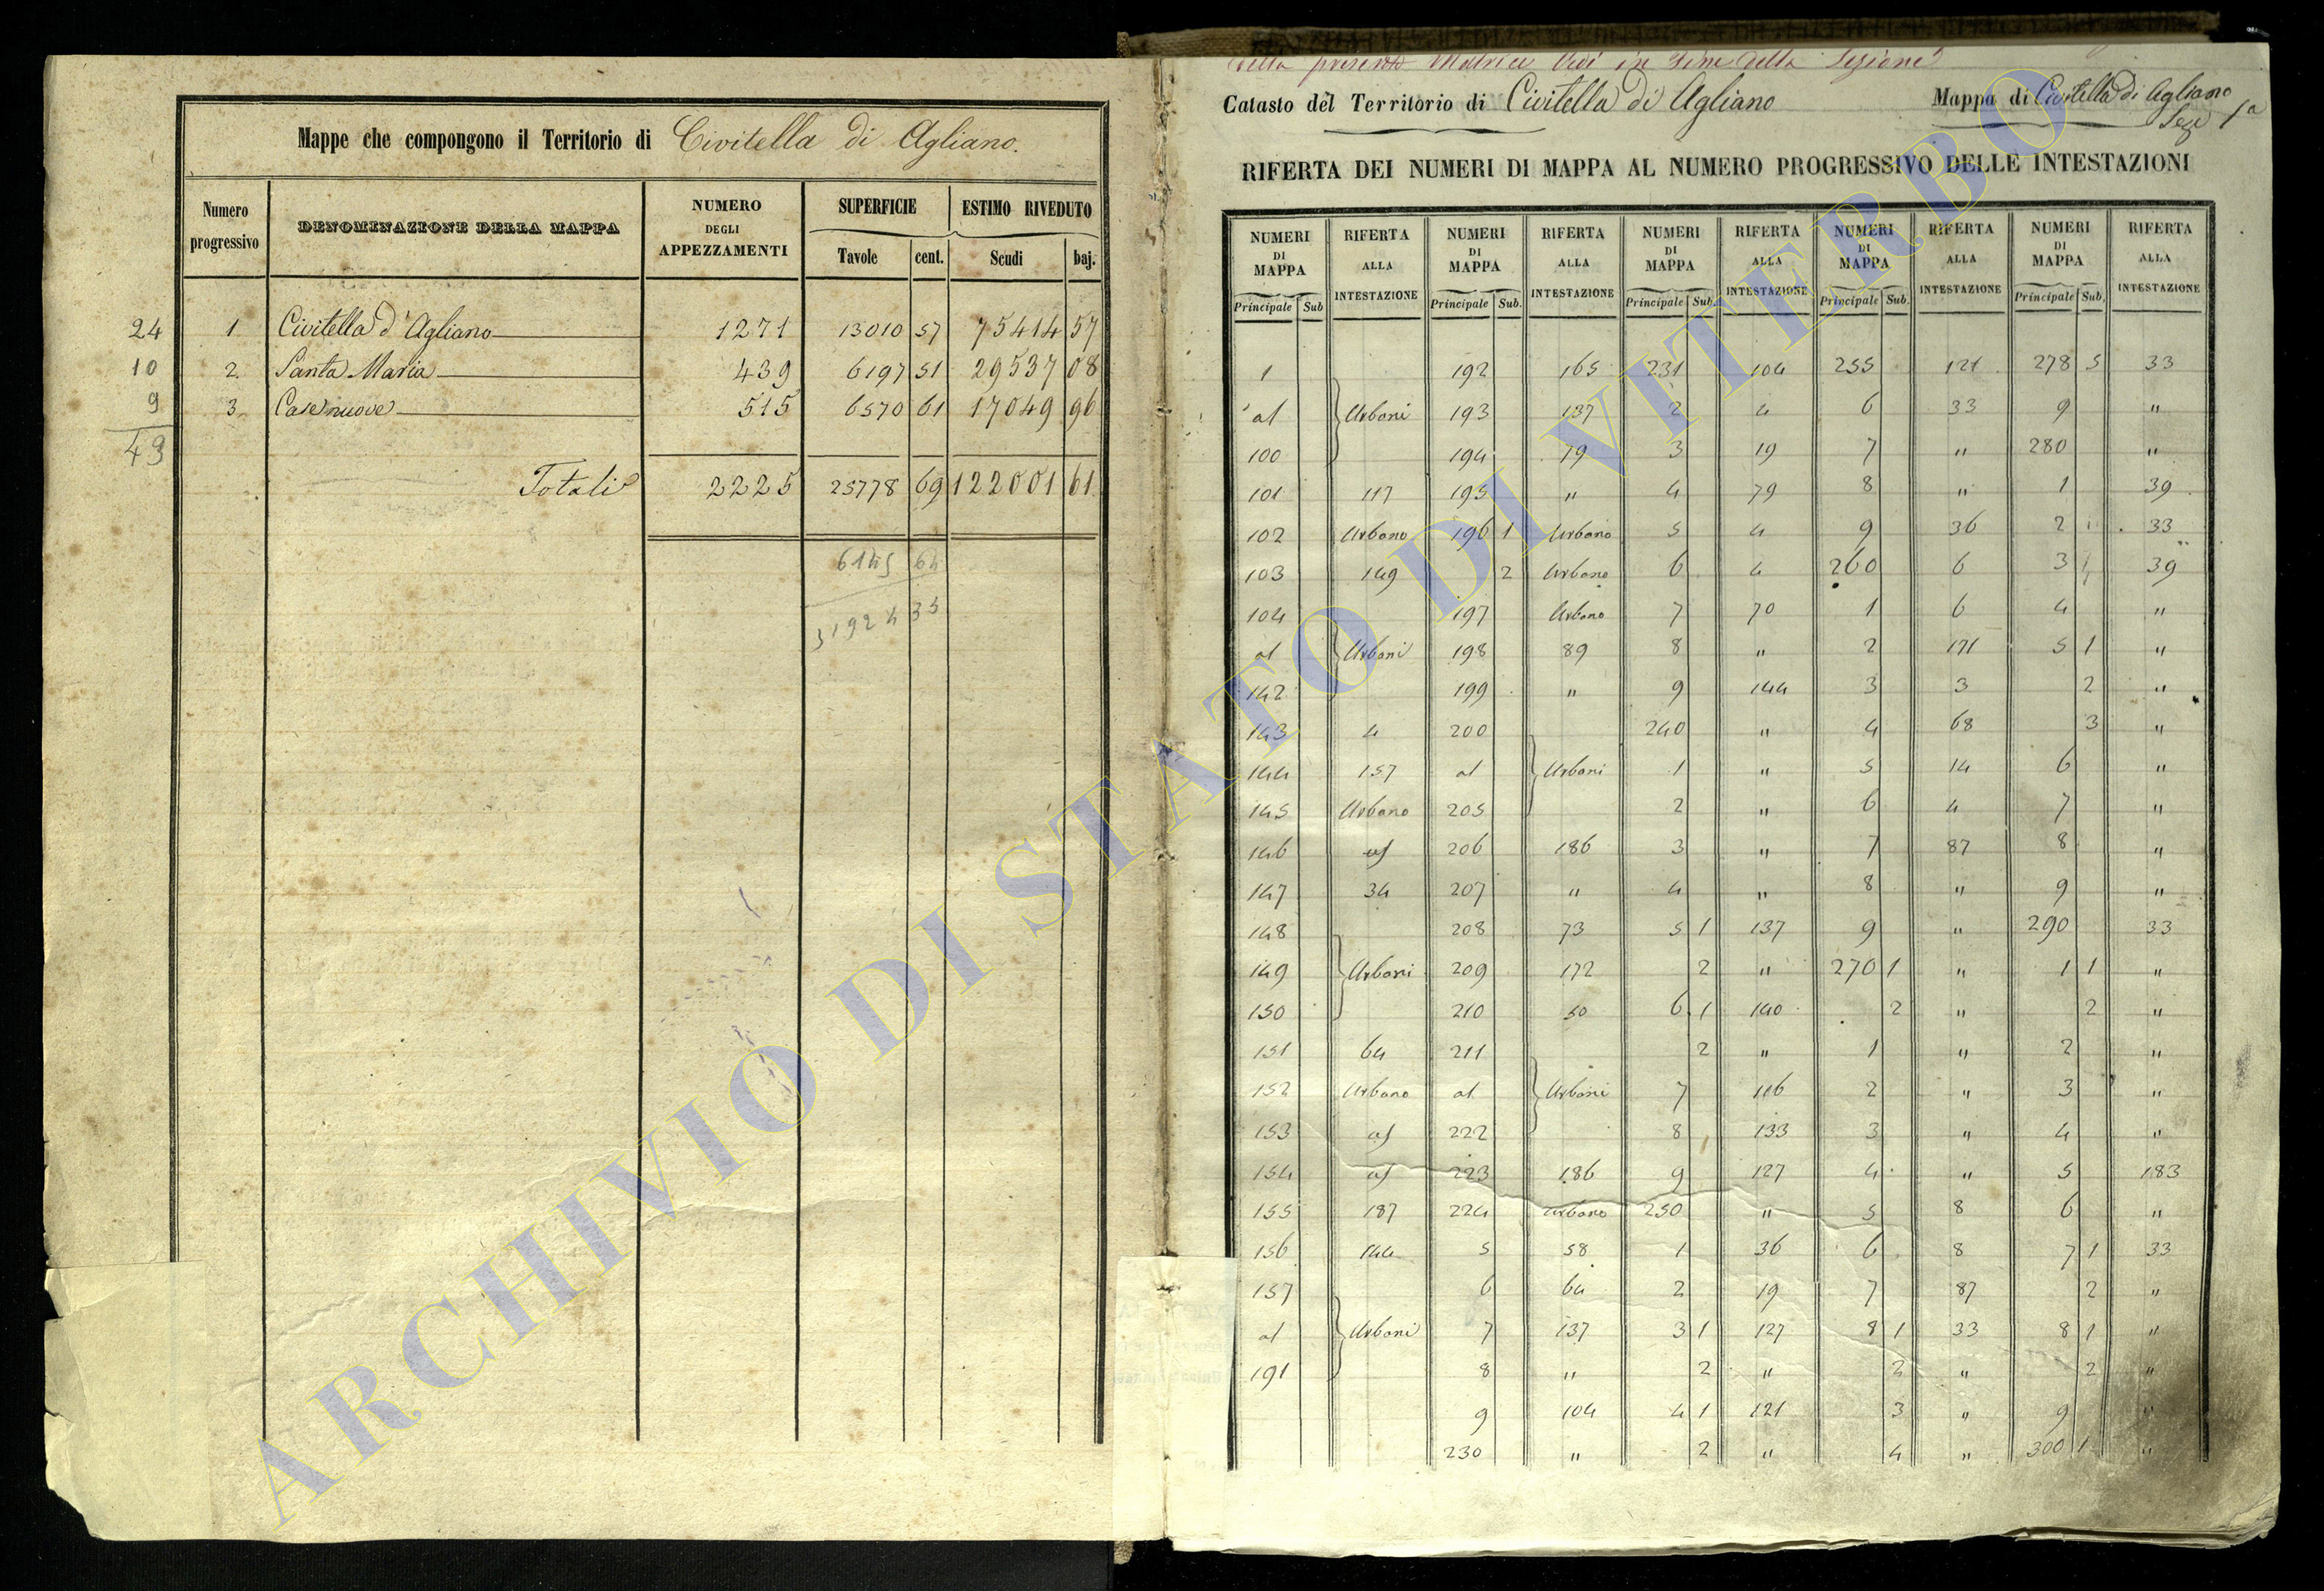 Mappe che compongono il Territorio di Civitella di Agliano.
Numero progressivo DENOMINAZIONE DELLA MAPPA NUMERO DEGLI APPEZZAMENTI SUPERFICIE ESTIMO RIVEDUTO
Tavole cent. Scudi baj.
24 1 Civitella d'Agliano 1271 13010 57 75414 57
10 2 Santa Maria 439 6197 51 29537 08
9 3 Casenuove 515 6570 61 17049 96
43
Totali 2225 25778 69 122001 61
6145 64
31924 33
della presente Matrice Vedi in fine della Sezione
Catasto del Territorio di Civitella di Agliano Mappa di Civitella di Agliano
Sez.e 1a
RIFERTA DEI NUMERI DI MAPPA AL NUMERO PROGRESSIVO DELLE INTESTAZIONI
NUMERI DI MAPPA RIFERTA ALLA INTESTAZIONE NUMERI DI MAPPA RIFERTA ALLA INTESTAZIONE NUMERI DI MAPPA RIFERTA ALLA INTESTAZIONE NUMERI DI MAPPA RIFERTA ALLA INTESTAZIONE NUMERI DI MAPPA RIFERTA ALLA INTESTAZIONE
Principale Sub Principale Sub. Principale Sub. Principale Sub. Principale Sub.
1 192 165 231 104 255 121 278 5 33
al Urbani 193 137 2 4 6 33 9 "
100 194 79 3 19 7 " 280 "
101 117 195 " 4 79 8 " 1 39
102 Urbano 196 1 Urbano 5 4 9 36 2 33
103 149 2 Urbano 6 4 260 6 3 39
104 197 Urbano 7 70 1 6 4 "
al Urbani 198 89 8 " 2 171 5 1 "
142 199 " 9 144 3 3 2 "
143 4 200 240 " 4 68 3 "
144 157 al Urbani 1 " 5 14 6 "
145 Urbano 205 2 " 6 4 7 "
146 206 186 3 " 7 87 8 "
147 34 207 " 4 " 8 " 9 "
148 208 73 5 1 137 9 " 290 33
149 Urbani 209 172 2 " 270 1 " 1 1 "
150 210 50 6 1 140 2 " 2 "
151 64 211 2 " 1 " 2 "
152 Urbano al Urbani 7 116 2 " 3 "
153 222 8 133 3 " 4 "
154 223 186 9 127 4 " 5 183
155 187 224 Urbano 250 " 5 8 6 "
156 144 5 58 1 36 6 8 7 1 33
157 6 64 2 19 7 87 2 "
al Urbani 7 137 3 1 127 8 1 33 8 1 "
191 8 " 2 " 2 " 2 "
9 104 4 1 121 3 " 9 "
230 " 2 " 4 " 300 1 "
ARCHIVIO DI STATO DI VITERBO